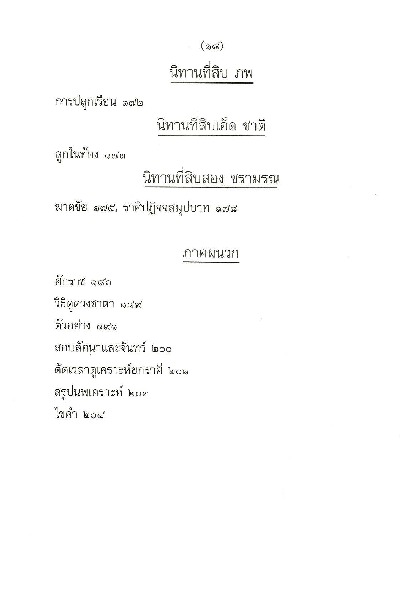 (๑๘)
นิทานที่สิบ ภพ
การปลูกเรือน ๑๗๒
นิทานที่สิบเอ็ด ชาติ
ลูกในท้อง ๑๗๓
นิทานที่สิบสอง ชรามรณ
ฆาตชัย ๑๗๙, ชาติปฏิจจสมุปบาท ๑๗๘
ภาคผนวก
ศักราช ๑๘๖
วิธีดูดวงชาตา ๑๘๙
ตัวอย่าง ๑๙๑
สอบลัคนาและจันทร์ ๒๐๐
ตัดเวลาดูเคราะห์ยกราศี ๒๐๒
สรุปนพเคราะห์ ๒๐๓
ไขคำ ๒๐๔